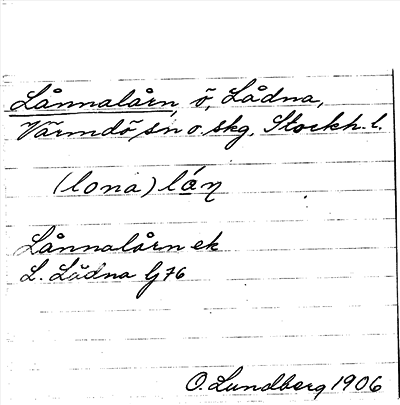 Lånnalårn, ö, Lådna,
Värmdö sn o. skg. Stockh. l.
(lona) lán
Lånnalårn ek
L. Lådna Gj 76
O. Lundberg 1906